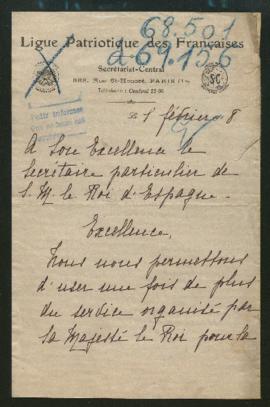 68.501
269.155
Ligue Patriotique des Françaises
Secrétariat-Central
368, Rue St-Honoré, PARIS (1er)
Téléphone : Central
1 février 8
A Son Excellence le
Secrétaire particulier de
S. M. le Roi d'Espagne.
Excellence,
Nous nous permettons
d'user une fois de plus
du service organisé par
sa Majesté le Roi pour la